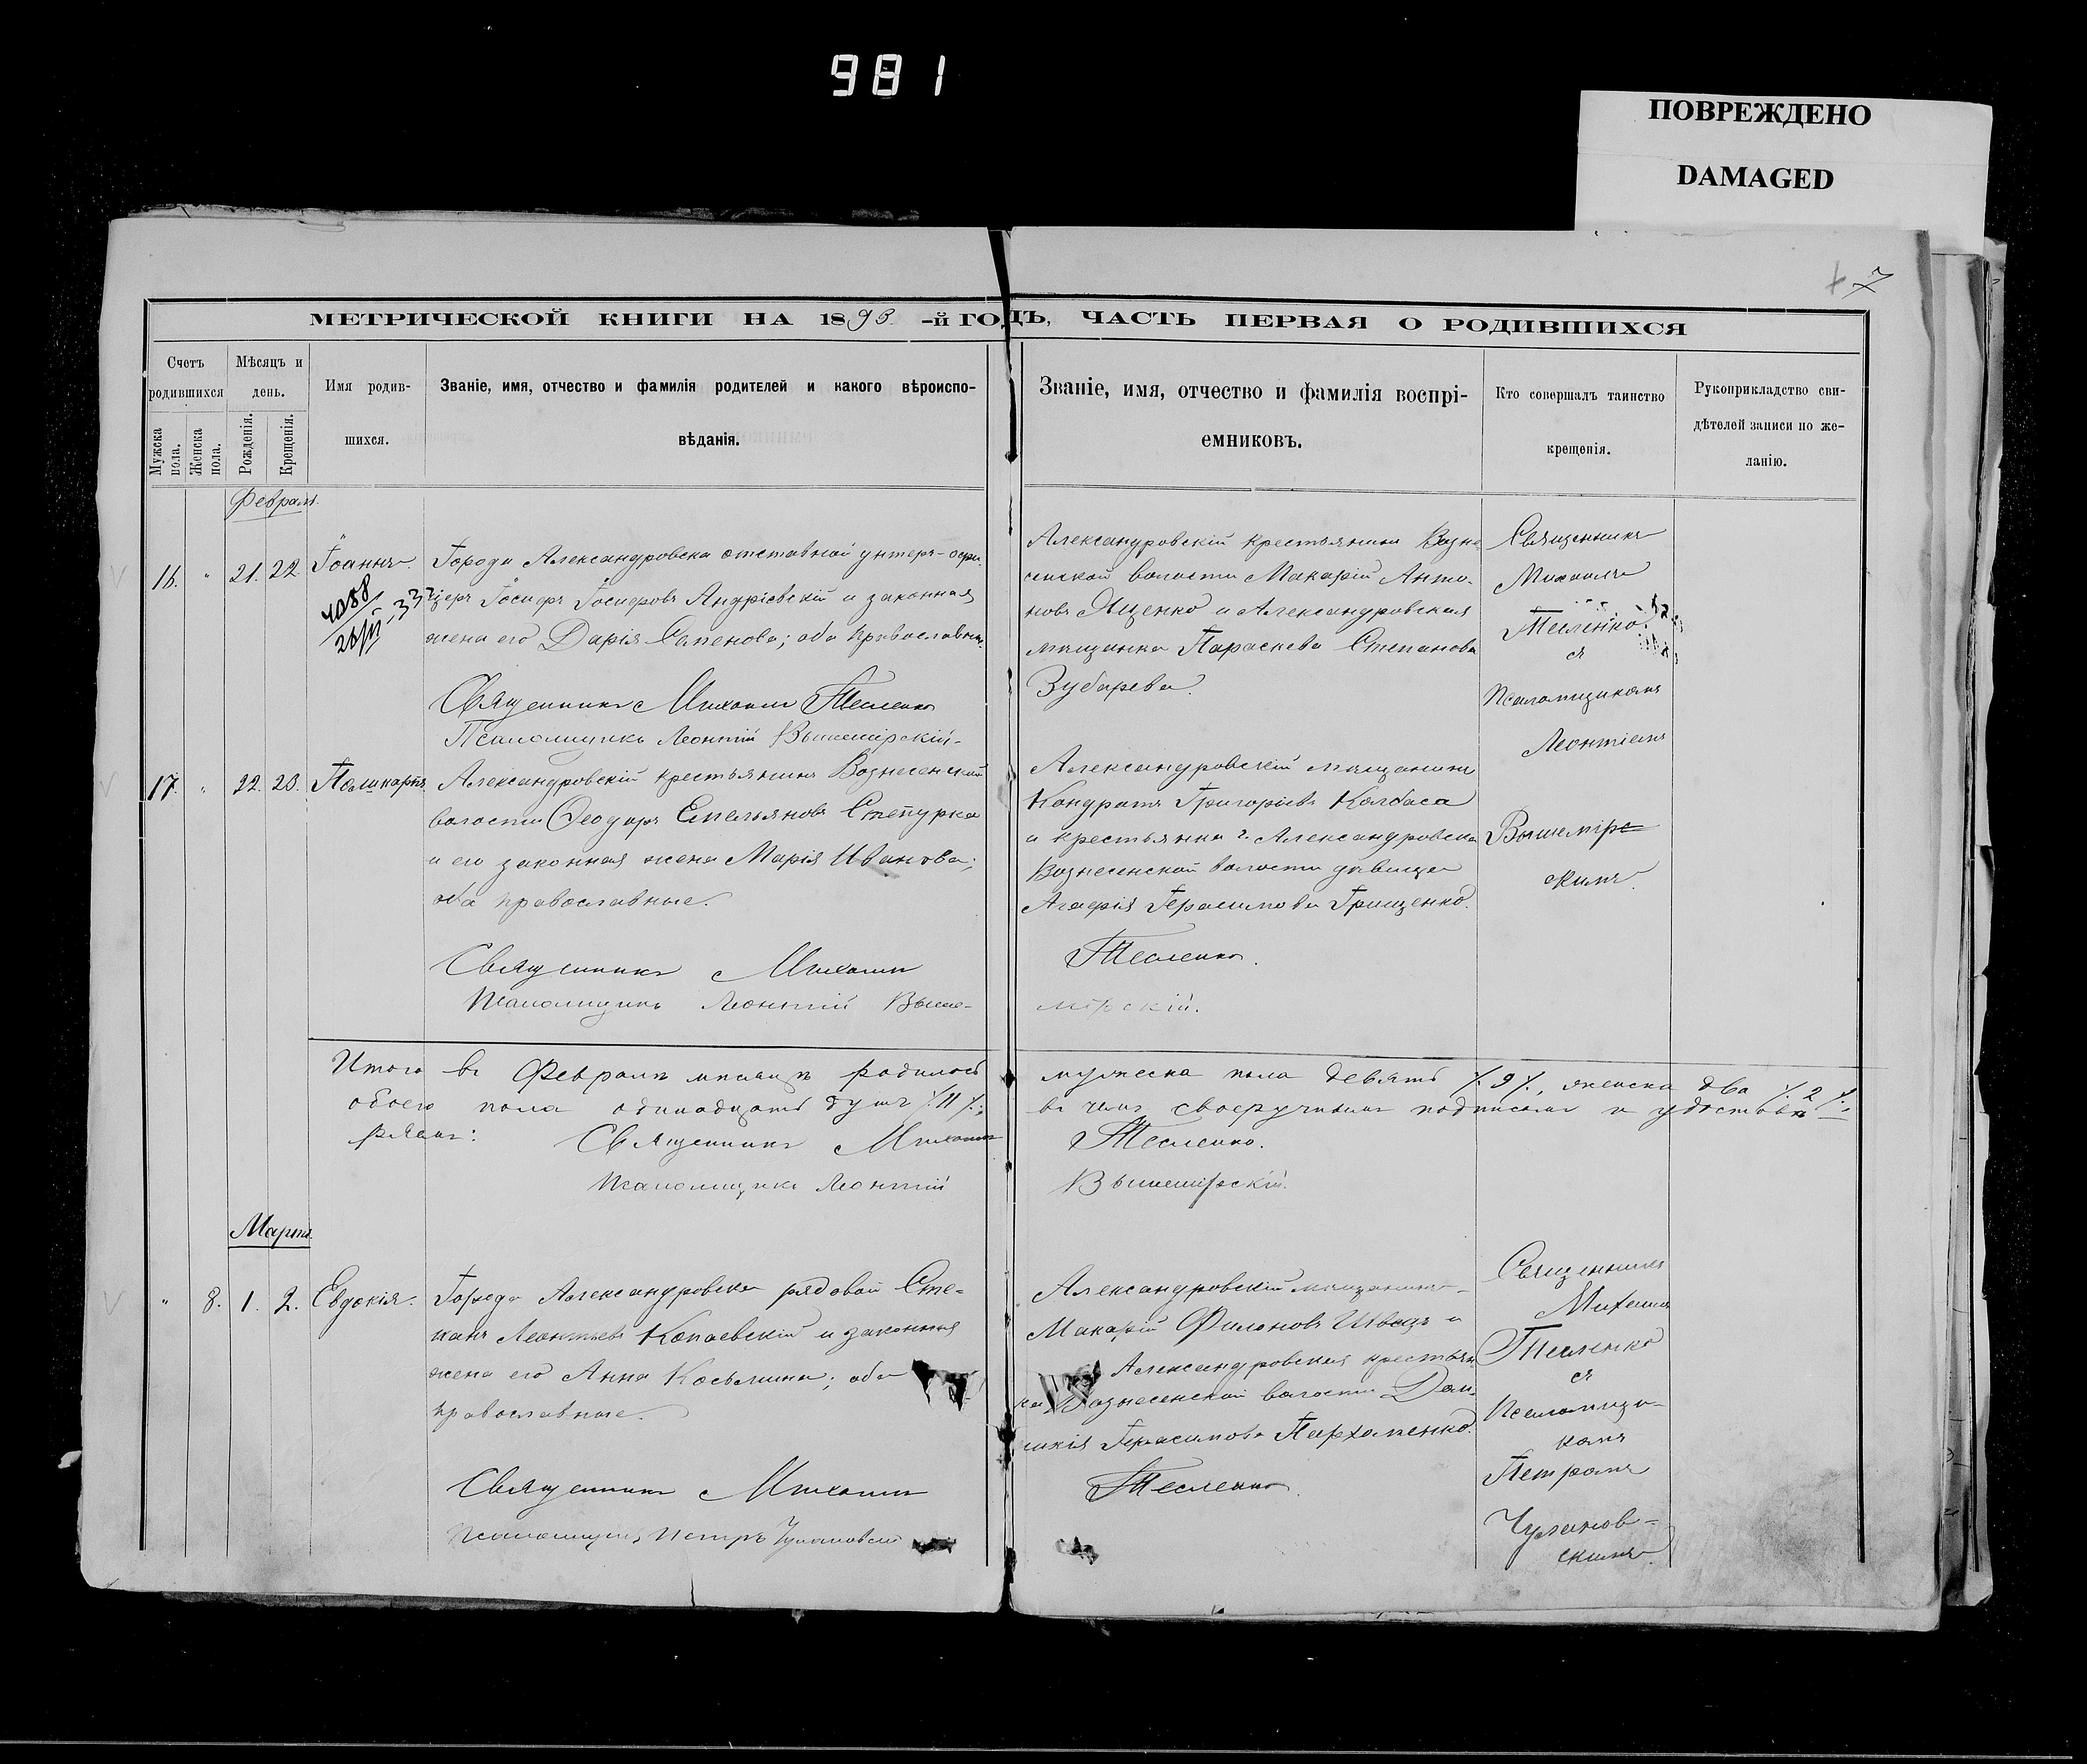 981
ПОВРЕЖДЕНО
DAMAGED
7
МЕТРИЧЕСКОЙ КНИГИ НА 1893.-й ГОДЪ, ЧАСТЬ ПЕРВАЯ О РОДИВШИХСЯ
Счетъ родившихся
Мужска пола.
Женска пола.
Мѣсяцъ и день.
Рожденія.
Крещенія.
Имя родив-
шихся.
Званіе, имя, отчество и фамилія родителей и какого вѣроиспо-
вѣданія.
Званіе, имя, отчество и фамилія воспрі-
емниковъ.
Кто совершалъ таинство
крещенія.
Рукоприкладство сви-
дѣтелей записи по же-
ланію.
Февраль.
16. " 21. 22. Іоаннъ.
4088
Города Александровска отставной унтеръ-офи-
церъ Іосифъ Іосифовъ Андріевскій и законная
жена его Дарія Семенова; оба православн.
Священникъ Михаилъ Тесленко
Псаломщикъ Леонтій Вышемірскій.
Александровскій крестьянинъ Возне-
сенской волости Макарій Анто-
новъ Яценко и Александровская
мѣщанка Параскева Степанова
Зубарева.
Священникъ
Михаилъ
Тесленко
съ
Псаломщикомъ
Леонтіемъ
Вышемірс-
кимъ.
17. " 22. 23. Поликарпъ.
Александровскій крестьянинъ Вознесенской
волости Ѳеодоръ Емельяновъ Степурка
и его законная жена Марія Иванова;
оба православные.
Священникъ Михаилъ Тесленко.
Псаломщикъ Леонтій Выше-мірскій.
Александровскій мѣщанинъ
Кондратъ Григоріевъ Колбаса
и крестьянка г. Александровска
Вознесенской волости дѣвица
Агафія Герасимова Грищенко.
Итого въ Февралѣ мѣсяцѣ родилось мужеска пола девять /. 9 /., женска два /. 2 /.,
обоего пола одинадцать душъ /. 11 /.; въ чемъ своеручнымъ подписомъ и удостовѣ-
ряемъ: Священникъ Михаилъ Тесленко.
Псаломщикъ Леонтій Вышемірскій.
Мартъ.
" 8. 1. 2. Евдокія.
Города Александровска рядовой Сте-
панъ Леонтьевъ Копаевскій и законная
жена его Анна Косьмина; оба
православные.
Священникъ Михаилъ Тесленко.
Псаломщикъ Петръ Чумановскі
Александровскій мѣщанинъ
Макарій Филоновъ Швецъ и
Александровская крестьян-
ка Вознесенской волости Дом-
никія Герасимова Пархоменко.
Священникъ
Михаилъ
Тесленко
съ
Псаломщи-
комъ
Петромъ
Чуманов-
скимъ.